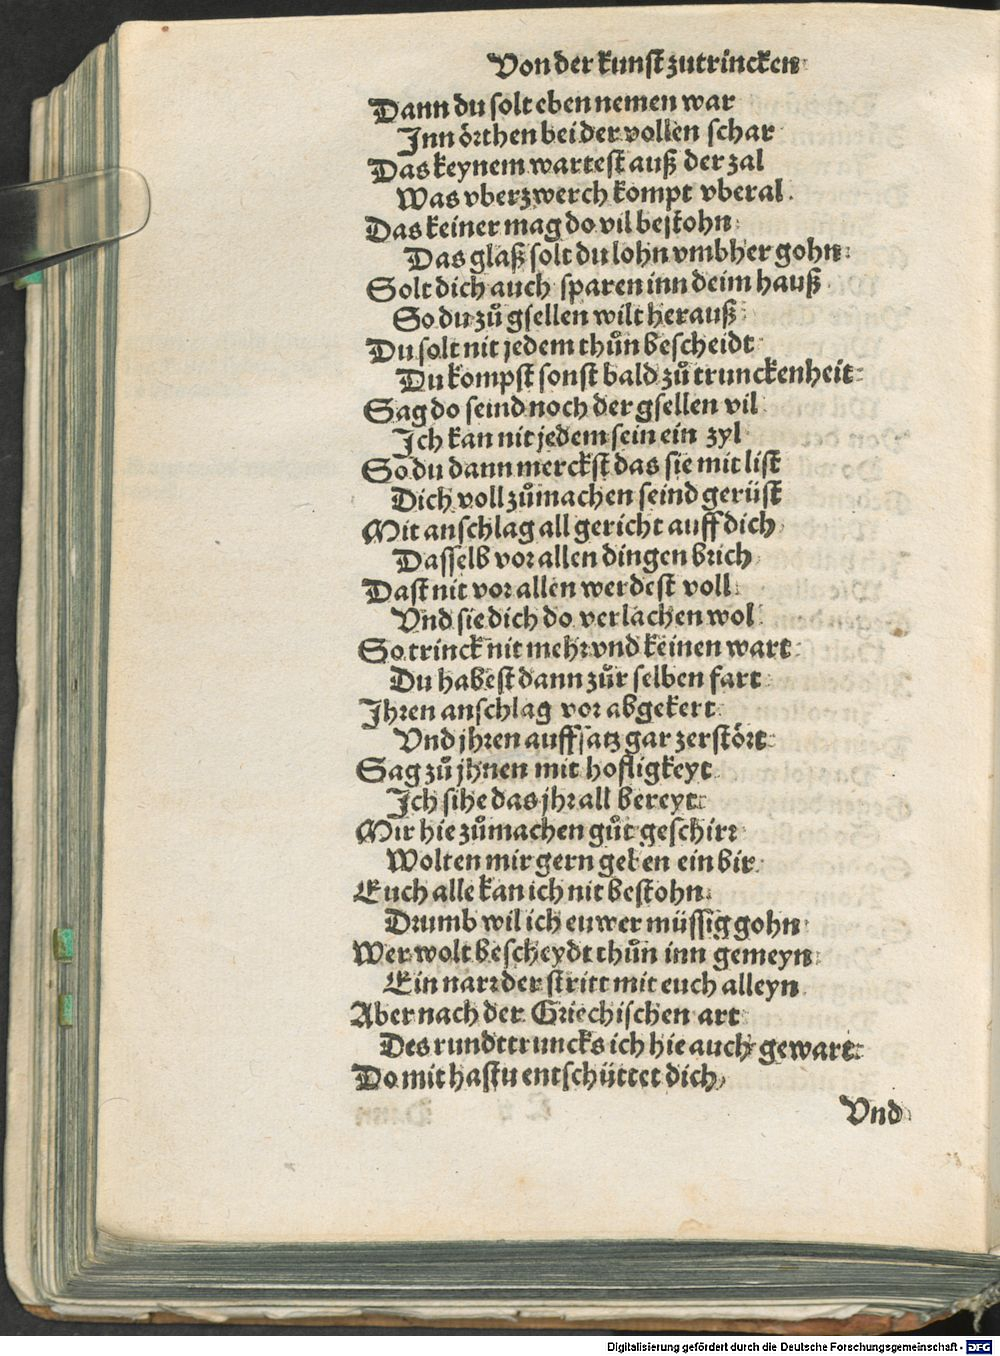 Von der kunst zutrincken
Dann du solt eben nemen war
Inn örthen bei der vollen schar
Das keynem wartest auß der zal
Was vberzwerch kompt vberal.
Das keiner mag do vil bestohn
Das glaß solt du lohn vmbher gohn
Solt dich auch sparen inn deim hauß
So du zů gsellen wilt herauß
Du solt nit jedem thůn bescheidt
Du kompst sonst bald zů trunckenheit
Sag do seind noch der gsellen vil
Ich kan nit jedem sein ein zyl
So du dann merckst das sie mit list
Dich voll zůmachen seind gerüst
Mit anschlag all gericht auff dich
Dasselb vor allen dingen brich
Dast nit vor allen werdest voll
Vnd sie dich do verlachen wol
So trinck nit mehr vnd keinen wart
Du habest dann zůr selben fart
Ihren anschlag vor abgekert
Vnd jhren auffsatz gar zerstört
Sag zů jhnen mit hofligkeyt
Ich sihe das jhr all bereyt
Mir hie zůmachen gůt geschirr
Wolten mir gern geben ein bir.
Euch alle kan ich nit bestohn
Drumb wil ich euwer müssig gohn
Wer wolt bescheydt thůn inn gemeyn
Ein narr der stritt mit euch alleyn
Aber nach der Griechischen art
Des rundttruncks ich hie auch gewart
Do mit hastu entschüttet dich
Vnd
Digitalisierung gefördert durch die Deutsche Forschungsgemeinschaft - DFG